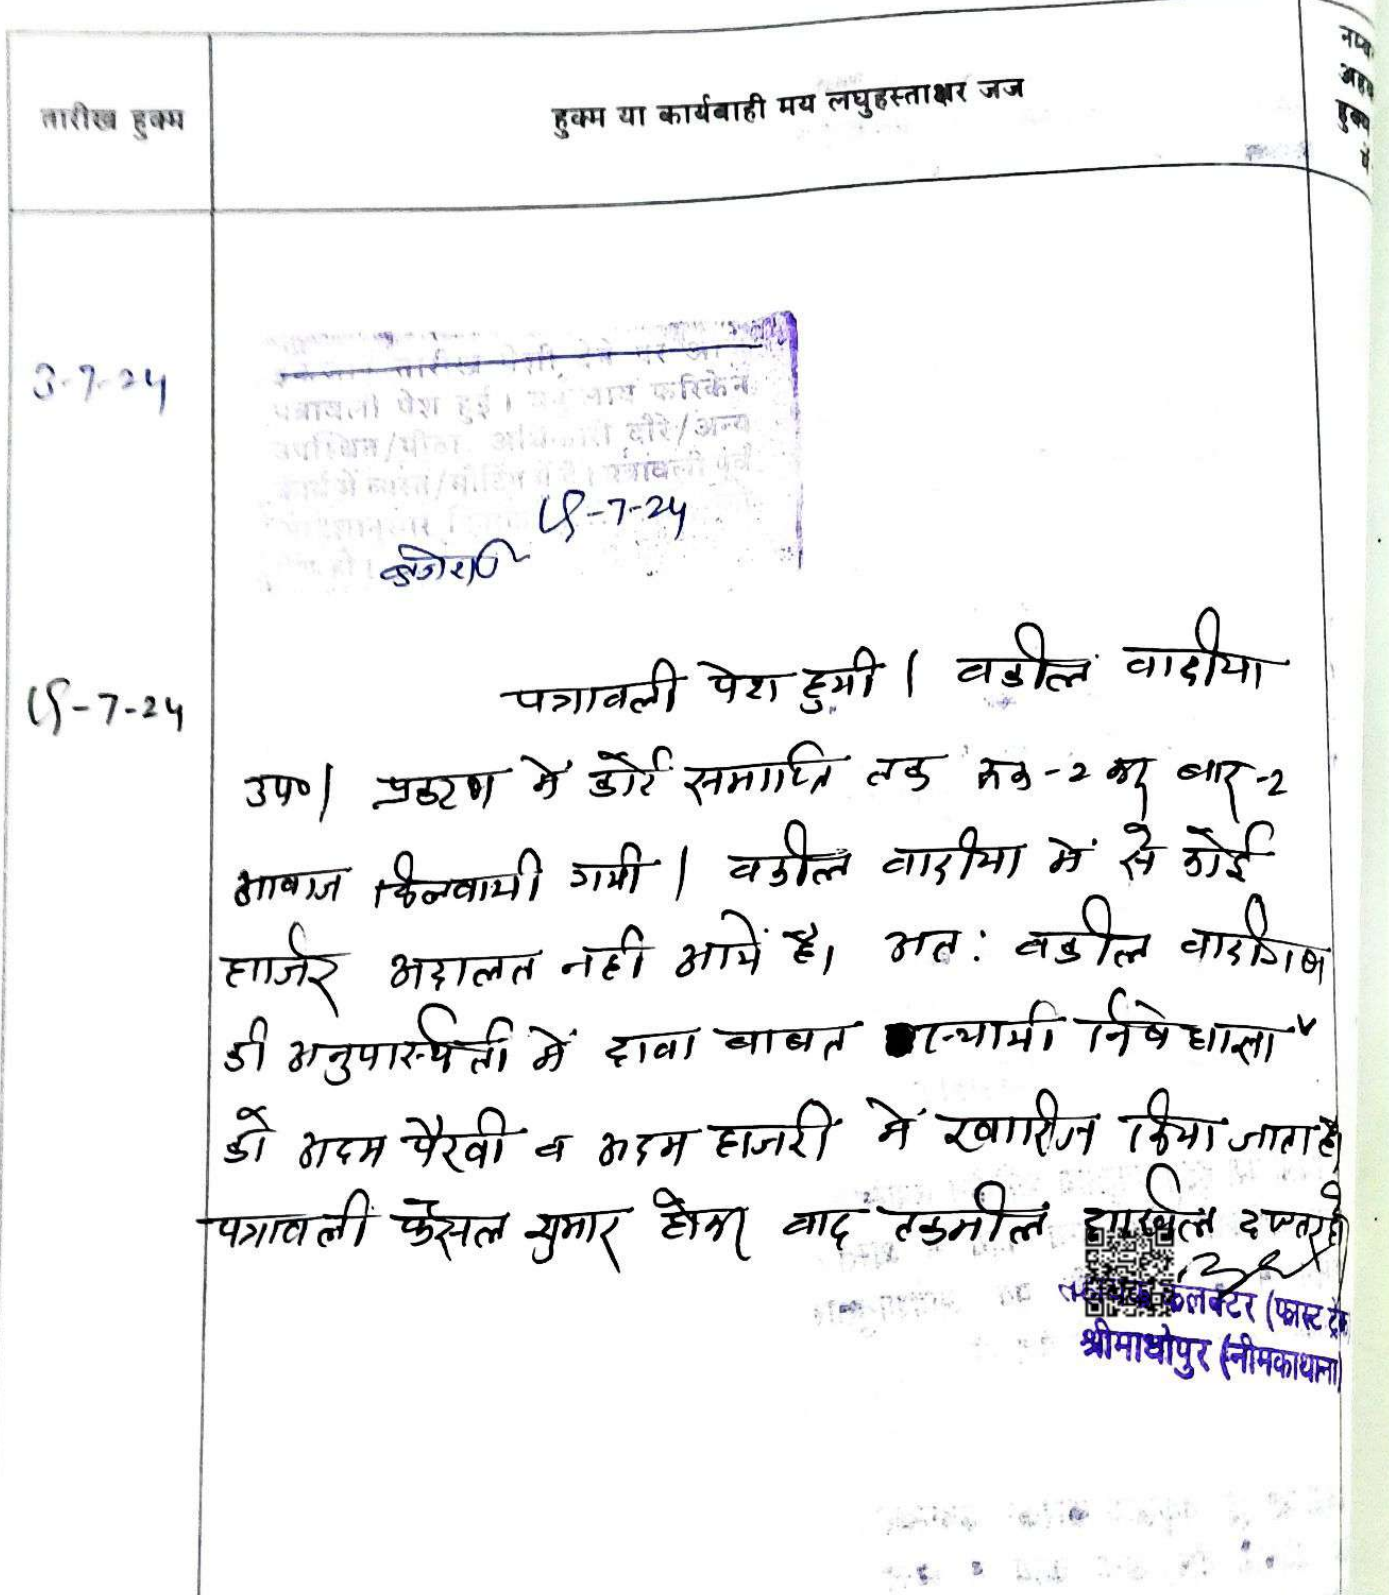 तारीख हुक्म
हुक्म या कार्यवाही मय लघुहस्ताक्षर जज
हुक्म
3-7-24
तारीख पेशी
पत्रावली पेश हुई। फरिकेन
उपस्थित/पीठा. अधिकारी दौरे/अन्य
कार्य में व्यस्त/मीटिंग में है। पत्रावली पूर्व
-7-24
-7-24
पत्रावली पेश हुयी। वकील वादीया
उप०। प्रकरण में कोर्ट समाप्ति तक रूक-2 कर बार-2
आवाज दिलवायी गयी। वकील वादीया में से कोई
हाजिर अदालत नही आये है। अत: वकील वादीगण
की अनुपस्थिती में दावा बाबत स्थायी निषेधाज्ञा
को अदम पैरवी व अदम हाजरी में खारीज किया जाता है।
पत्रावली फैसल शुमार होकर बाद तकमील दाखिल दफ्तर हो
कलक्टर (फास्ट ट्रेक
श्रीमाधोपुर (नीमकाथाना)